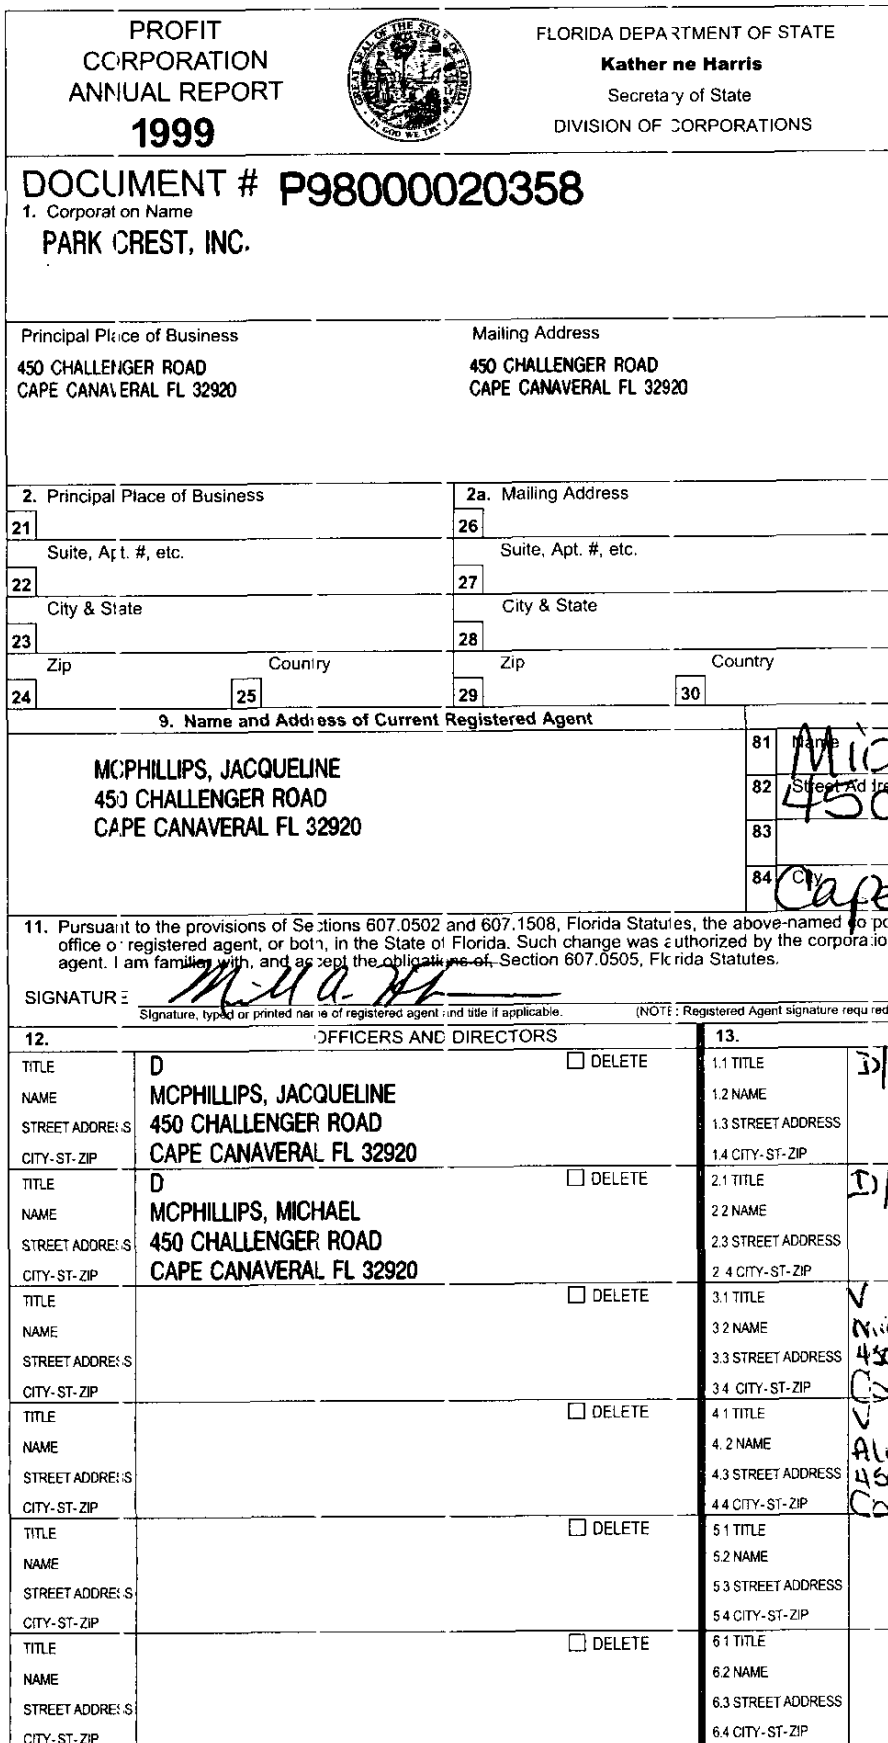 PROFIT
CORPORATION
ANNUAL REPORT
1999
GREAT SEAL OF THE STATE OF FLORIDA
IN GOD WE TRUST
FLORIDA DEPARTMENT OF STATE
Katherine Harris
Secretary of State
DIVISION OF CORPORATIONS
DOCUMENT # P98000020358
1. Corporation Name
PARK CREST, INC.
Principal Place of Business
Mailing Address
450 CHALLENGER ROAD
CAPE CANAVERAL FL 32920
450 CHALLENGER ROAD
CAPE CANAVERAL FL 32920
2. Principal Place of Business
2a. Mailing Address
21
26
Suite, Apt. #, etc.
Suite, Apt. #, etc.
22
27
City & State
City & State
23
28
Zip
Country
Zip
Country
24
25
29
30
9. Name and Address of Current Registered Agent
MCPHILLIPS, JACQUELINE
450 CHALLENGER ROAD
CAPE CANAVERAL FL 32920
81 Name
82 Street Addre
450
83
84 City
Cape
11. Pursuant to the provisions of Sections 607.0502 and 607.1508, Florida Statutes, the above-named corpo
office or registered agent, or both, in the State of Florida. Such change was authorized by the corporatio
agent. I am familiar with, and accept the obligations of, Section 607.0505, Florida Statutes.
SIGNATURE
Signature, typed or printed name of registered agent and title if applicable.
(NOTE: Registered Agent signature required
12. OFFICERS AND DIRECTORS
13.
TITLE D DELETE
NAME MCPHILLIPS, JACQUELINE
STREET ADDRESS 450 CHALLENGER ROAD
CITY-ST-ZIP CAPE CANAVERAL FL 32920
1.1 TITLE D/
1.2 NAME
1.3 STREET ADDRESS
1.4 CITY-ST-ZIP
TITLE D DELETE
NAME MCPHILLIPS, MICHAEL
STREET ADDRESS 450 CHALLENGER ROAD
CITY-ST-ZIP CAPE CANAVERAL FL 32920
2.1 TITLE D/
2.2 NAME
2.3 STREET ADDRESS
2.4 CITY-ST-ZIP
TITLE DELETE
NAME
STREET ADDRESS
CITY-ST-ZIP
3.1 TITLE V
3.2 NAME
3.3 STREET ADDRESS 450
3.4 CITY-ST-ZIP
TITLE DELETE
NAME
STREET ADDRESS
CITY-ST-ZIP
4.1 TITLE V
4.2 NAME
4.3 STREET ADDRESS 45
4.4 CITY-ST-ZIP
TITLE DELETE
NAME
STREET ADDRESS
CITY-ST-ZIP
5.1 TITLE
5.2 NAME
5.3 STREET ADDRESS
5.4 CITY-ST-ZIP
TITLE DELETE
NAME
STREET ADDRESS
CITY-ST-ZIP
6.1 TITLE
6.2 NAME
6.3 STREET ADDRESS
6.4 CITY-ST-ZIP